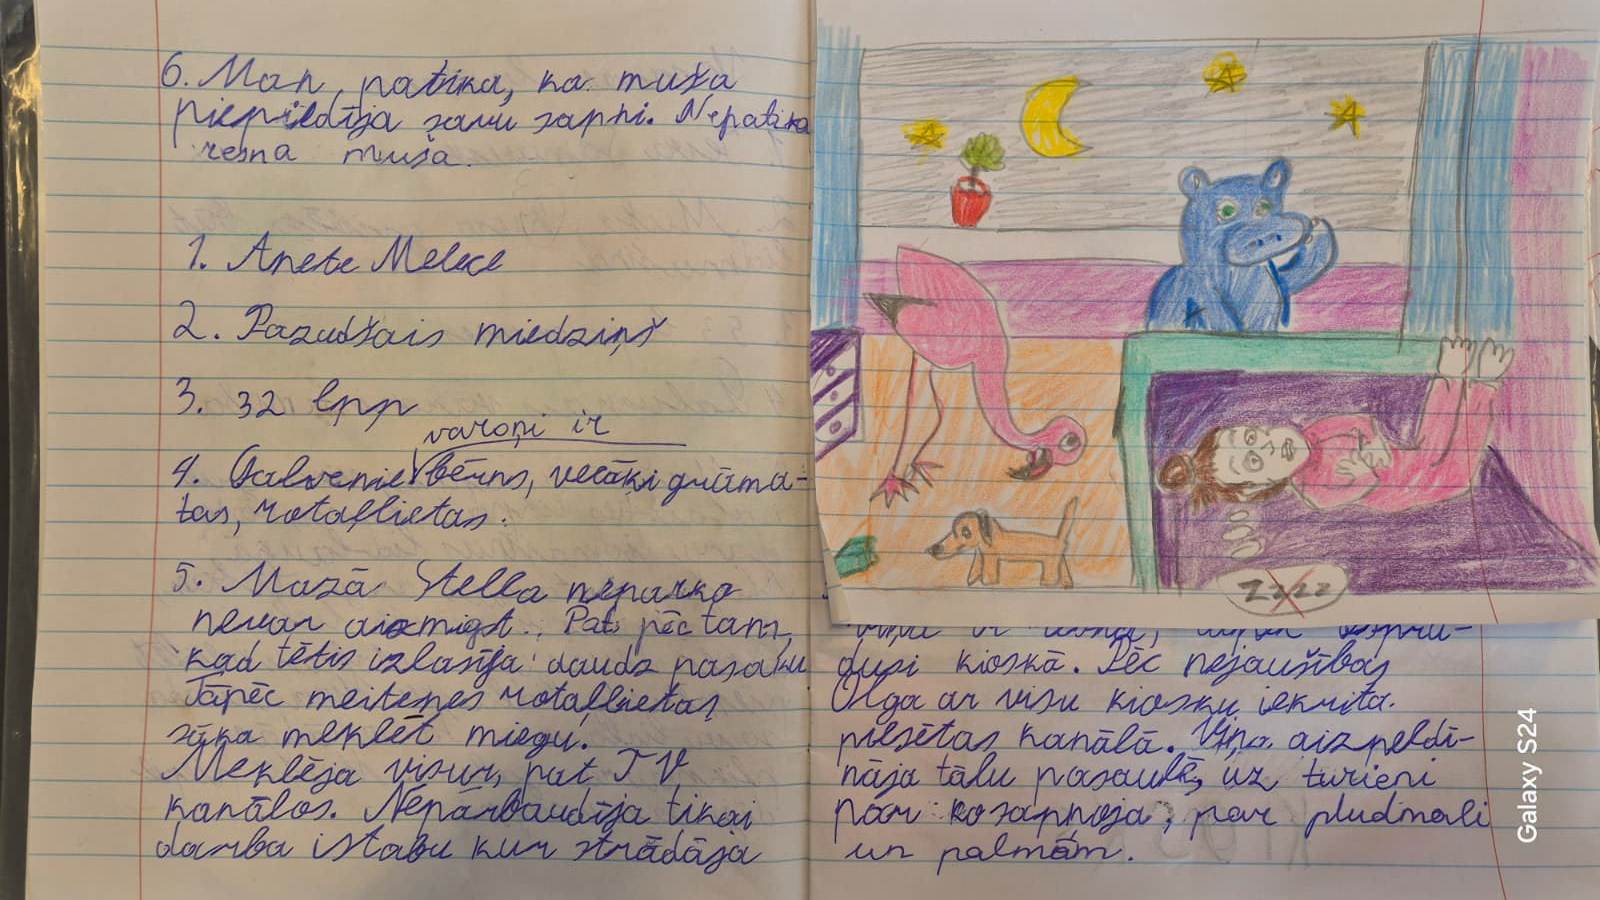 6. Man patika, ka muša
piepildīja savu sapni. Nepatika
resna muša.
1. Anete Melece
2. Pazudušais miedziņš
3. 32 lpp
varoņi ir
4. Galvenie bērns, vecāki grāma-
tas, rotaļlietas.
5. Mazā Stella neparko
nevar aizmigt. Pat pēc tam,
kad tētis izlasīja daudz pasaku
Tāpēc meitenes rotaļlietas
sāka meklēt miegu.
Meklēja visur, pat TV
kanālos. Nepārbaudīja tikai
darba istabu kur strādāja
Zzzz
dusi kioskā. Pēc nejaušības
Olga ar visu kiosku iekrita
pilsētas kanālā. Viņa aizpeldi-
nāja tālu pasaulē, uz turieni
par ko sapņoja, par pludmali
un palmām.
Galaxy S24